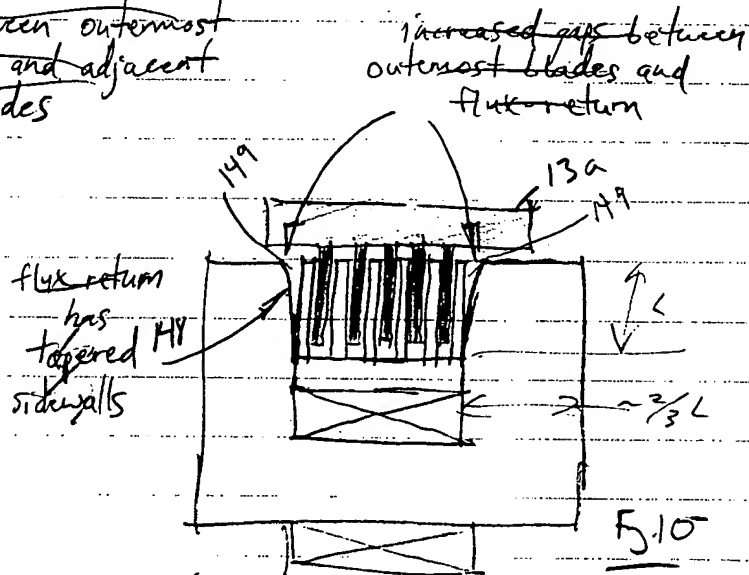 een outermost
and adjacent
des
increased gaps between
outermost blades and
flux return
149
13a
149
flux return
has
tapered 148
sidewalls
L
~2/3 L
Fig. 10